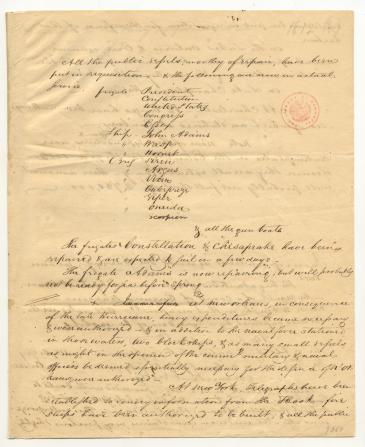 All the public vessels, worthy of repair, have been
put in requisition & the following are now in actual
service
frigates President
Constitution
United States
Congress
Essex
Ship John Adams
" Wasp
" Hornet
Brig Siren
" Argus
" Vixen
" Enterprize
" Viper
" Oneida
scorpion
& all the gun boats
The frigates Constellation & Chesapeake have been
repaired & are expected to sail in a few days
The frigate Adams is now repairing; but will probably
not be ready for sea before spring
at New Orleans, in consequence
of the late Hurricane heavy expenditures became necessary
& were authorized & in addition to the naval force stationed
in those waters, two block ships, & as many small vessels
as might in the opinion of the military & naval
officers be deemed necessary for the defence of
were authorized
At New York, Telegraphs have been
established to convey information from the Hook five
ships have been authorized to be built, & all the public